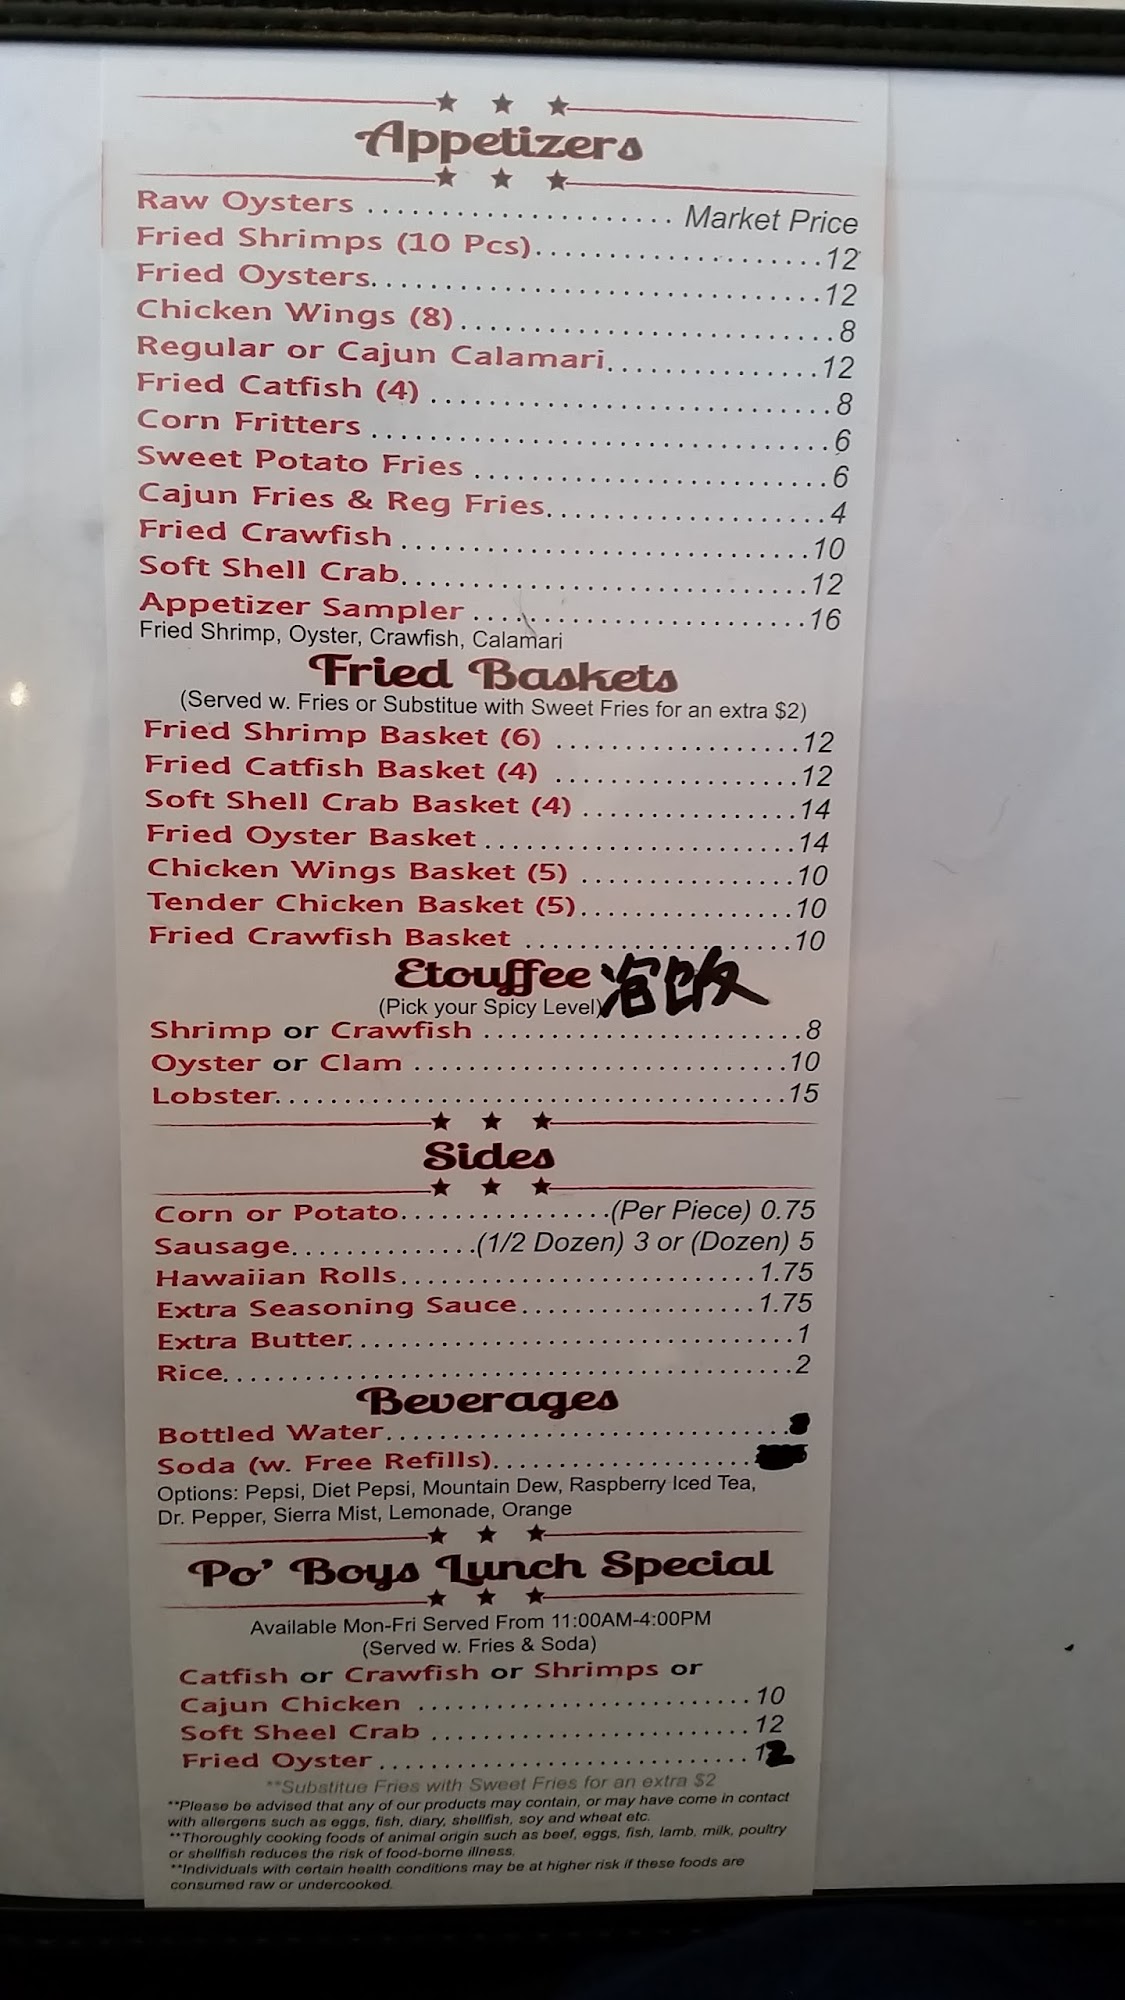 Appetizers
Raw Oysters ..................... Market Price
Fried Shrimps (10 Pcs)....................12
Fried Oysters...............................12
Chicken Wings (8)..........................8
Regular or Cajun Calamari...............12
Fried Catfish (4) ............................8
Corn Fritters ................................6
Sweet Potato Fries .........................6
Cajun Fries & Reg Fries....................4
Fried Crawfish ............................10
Soft Shell Crab............................12
Appetizer Sampler .......................16
Fried Shrimp, Oyster, Crawfish, Calamari
Fried Baskets
(Served w. Fries or Substitue with Sweet Fries for an extra $2)
Fried Shrimp Basket (6) ...................12
Fried Catfish Basket (4) ...................12
Soft Shell Crab Basket (4) .................14
Fried Oyster Basket ........................14
Chicken Wings Basket (5) .................10
Tender Chicken Basket (5).................10
Fried Crawfish Basket .....................10
Etouffee 泡饭
(Pick your Spicy Level)
Shrimp or Crawfish .........................8
Oyster or Clam .............................10
Lobster.......................................15
Sides
Corn or Potato.................(Per Piece) 0.75
Sausage...............(1/2 Dozen) 3 or (Dozen) 5
Hawaiian Rolls............................1.75
Extra Seasoning Sauce...................1.75
Extra Butter...................................1
Rice............................................2
Beverages
Bottled Water................................
Soda (w. Free Refills)......................
Options: Pepsi, Diet Pepsi, Mountain Dew, Raspberry Iced Tea,
Dr. Pepper, Sierra Mist, Lemonade, Orange
Po' Boys Lunch Special
Available Mon-Fri Served From 11:00AM-4:00PM
(Served w. Fries & Soda)
Catfish or Crawfish or Shrimps or
Cajun Chicken ............................10
Soft Sheel Crab ..........................12
Fried Oyster ...............................12
**Substitue Fries with Sweet Fries for an extra $2
**Please be advised that any of our products may contain, or may have come in contact
with allergens such as eggs, fish, diary, shellfish, soy and wheat etc.
**Thoroughly cooking foods of animal origin such as beef, eggs, fish, lamb, milk, poultry
or shellfish reduces the risk of food-borne illness.
**Individuals with certain health conditions may be at higher risk if these foods are
consumed raw or undercooked.